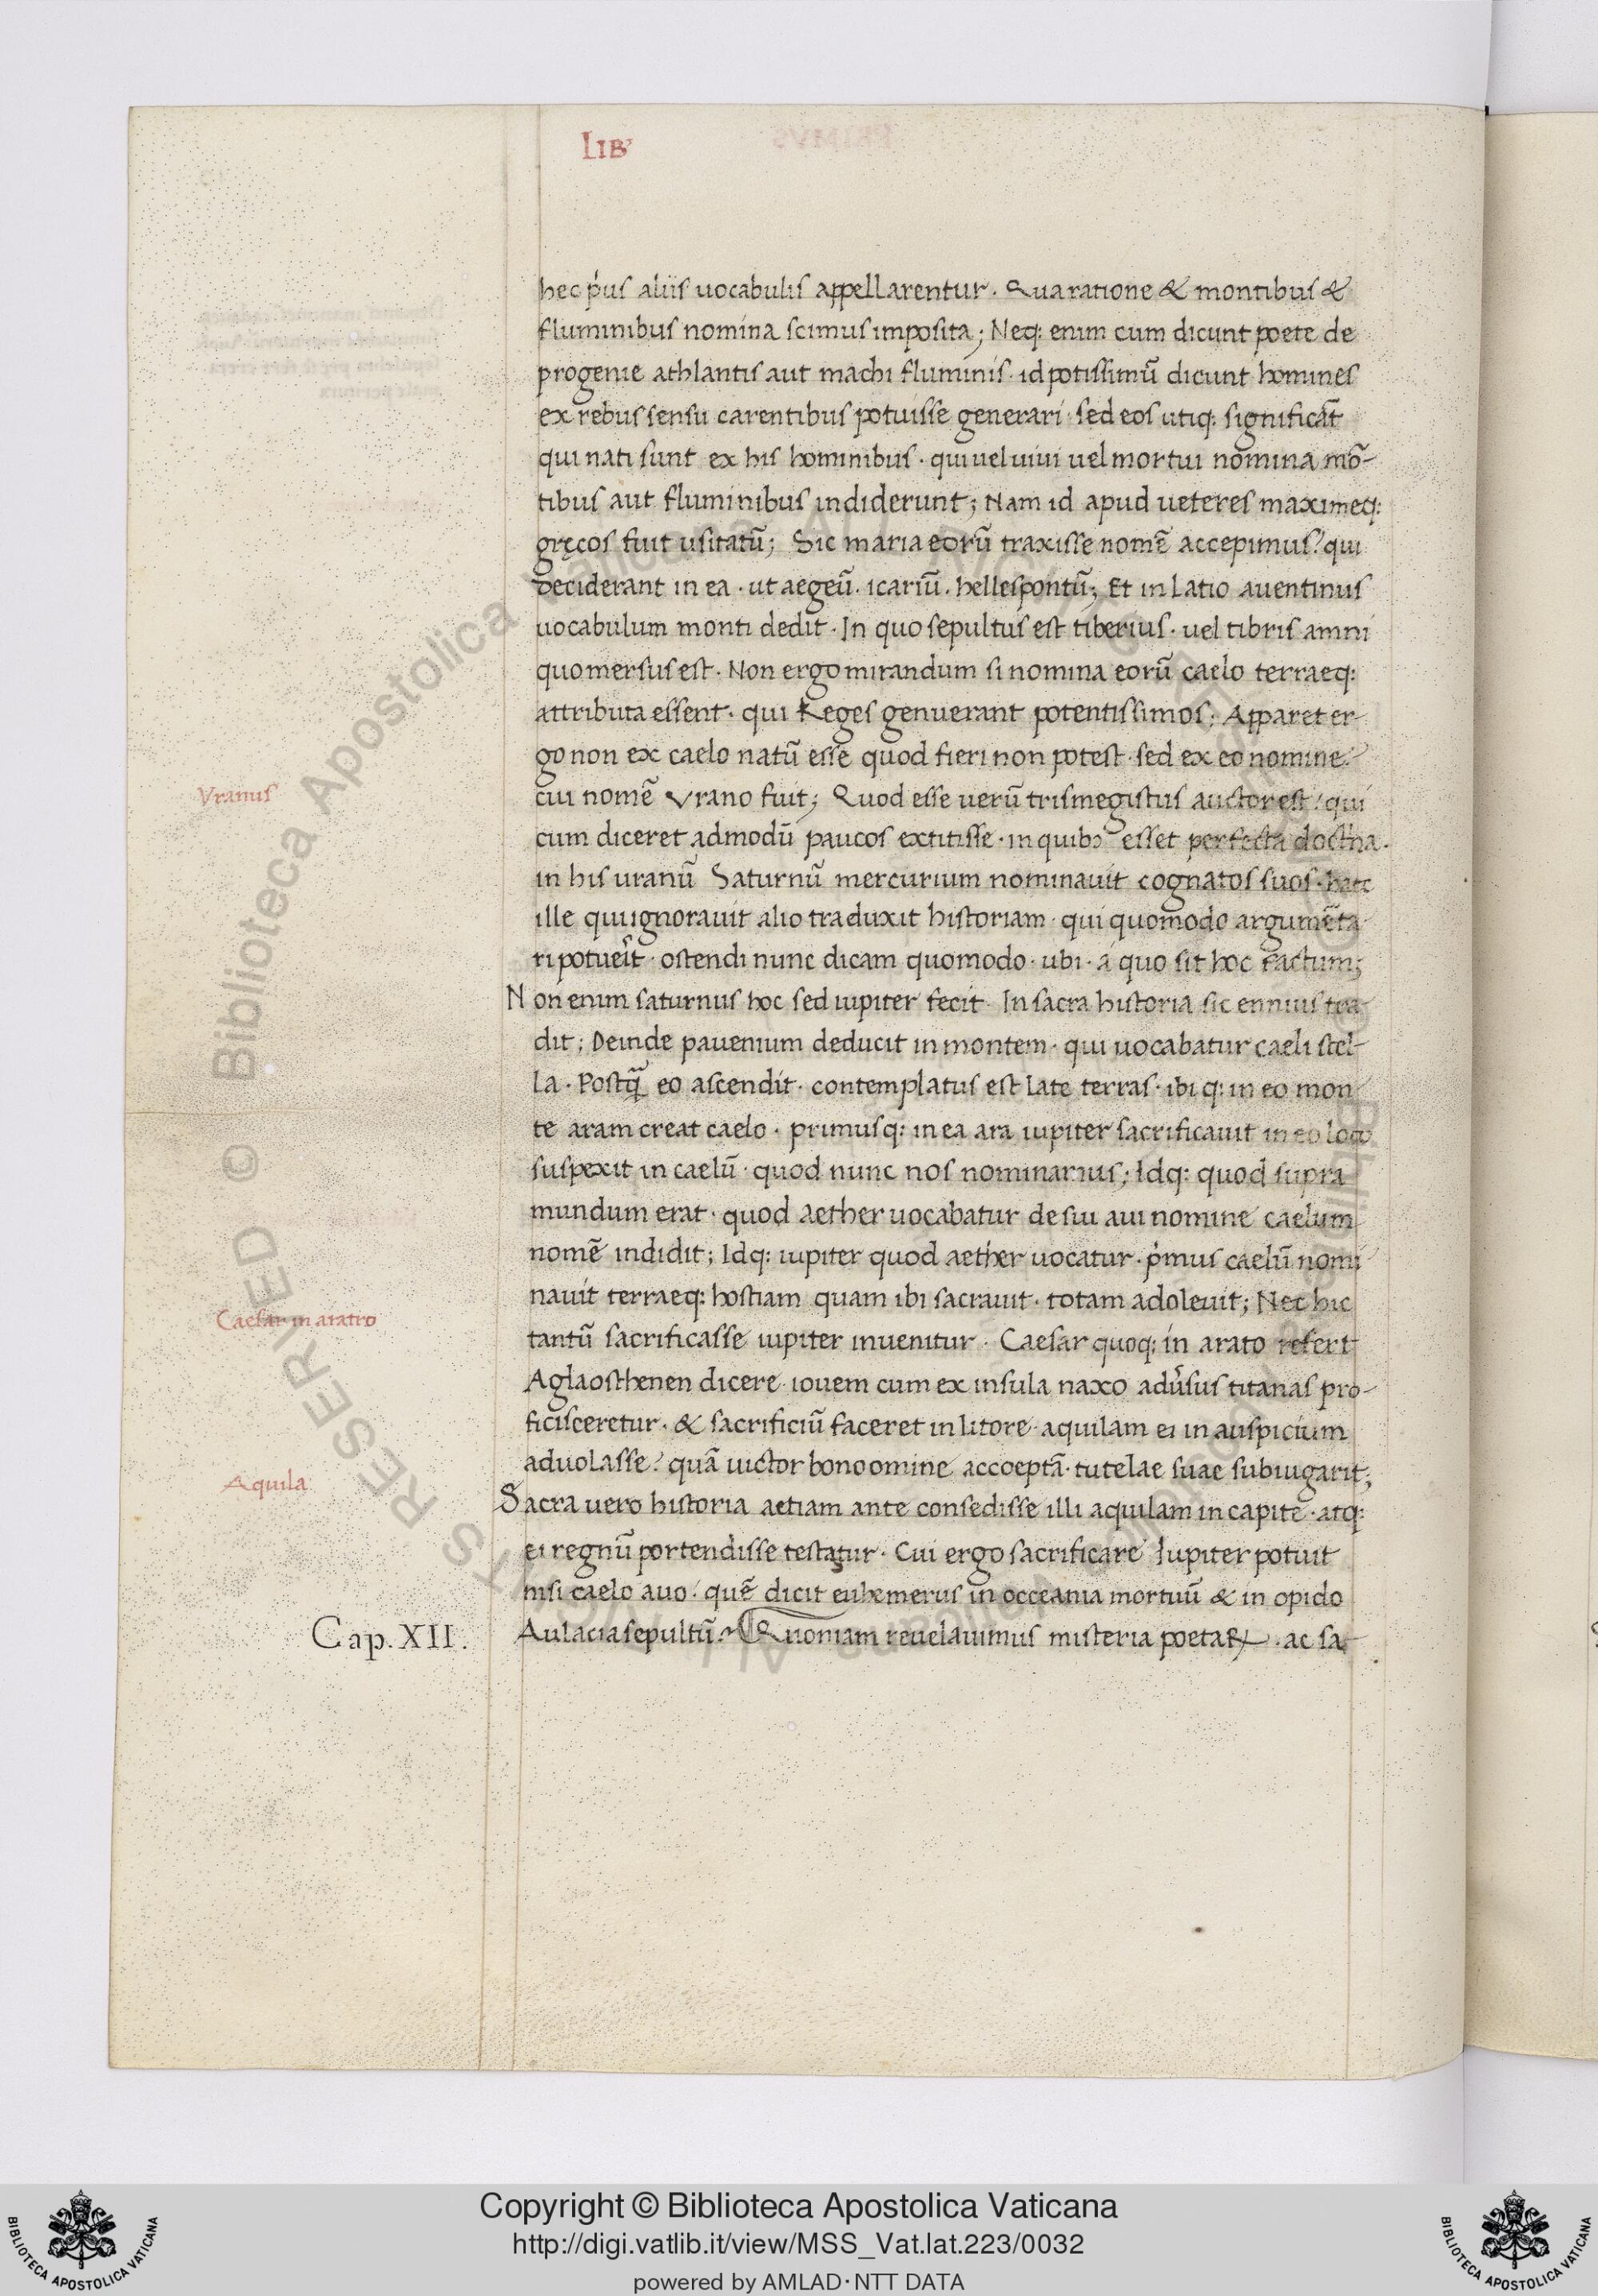 LIB'
hec p̾us aliis uocabulis appellarentur. Qua ratione & montibus &
fluminibus nomina scimus imposita; Neq: enim cum dicunt poete de
progenie athlantis aut machi fluminis. id potissimū dicunt homines
ex rebus sensu carentibus potuisse generari. sed eos utiq: significāt
qui nati sunt ex his hominibus. qui uel uiui uel mortui nomina mō-
tibus aut fluminibus indiderunt; Nam id apud ueteres maximeq:
gręcos fuit usitatū; Sic maria eorū traxisse nomē accepimus? qui
deciderant in ea. ut aegeū. icariū. hellespontū; Et in Latio auentinus
uocabulum monti dedit. In quo sepultus est tiberius. uel tibris amni
quo mersus est. Non ergo mirandum si nomina eorū caelo terraeq:
attributa essent. qui Reges genuerant potentissimos; Apparet er-
go non ex caelo natū esse quod fieri non potest. sed ex eo nomine.
Vranus
cui nomē Vrano fuit; Quod esse uerū trismegistus auctor est! qui
cum diceret admodū paucos extitisse. in quibꝫ esset perfecta doct'na.
in his uranū Saturnū mercurium nominauit cognatos suos. haec
ille qui ignorauit alio traduxit historiam. qui quomodo argumēta-
ri potueīt. ostendi nunc dicam quomodo. ubi. á quo sit hoc factum;
Non enim saturnus hoc sed iupiter fecit. In sacra historia sic ennius tra-
dit; Deinde pauenium deducit in montem. qui uocabatur caeli stel-
la. Postq̄ eo ascendit. contemplatus est Late terras. ibi q: in eo mon-
te aram creat caelo. primusq: in ea ara iupiter sacrificauit in eo loco
suspexit in caelū. quod nunc nos nominamus; Idq: quod supra
mundum erat. quod aether uocabatur de sui aui nomine caelum
nomē indidit; Idq: iupiter quod aether uocatur. p̾mus caelū nomi-
nauit terraeq: hostiam quam ibi sacrauit. totam adoleuit; Nec hic
Caesar in aratro
tantū sacrificasse iupiter inuenitur. Caesar quoq: in arato refert
Aglaosthenen dicere. iouem cum ex insula naxo adu̾sus titanas pro-
ficisceretur. & sacrificiū faceret in litore. aquilam ei in auspicium
Aquila
aduolasse? quā uictor bono omine accoeptā. tutelae suae subiugarit;
Sacra uero historia aetiam ante consedisse illi aquilam in capite. atq:
ei regnū portendisse testatur. Cui ergo sacrificare Iupiter potuit
nisi caelo auo! quē dicit euhemerus in occeania mortuū & in opido
Cap. XII.
Aulacia sepultū. Quoniam reuelauimus misteria poetaꝝ. ac sa-
Copyright © Biblioteca Apostolica Vaticana
http://digi.vatlib.it/view/MSS_Vat.lat.223/0032
powered by AMLAD·NTT DATA
BIBLIOTECA APOSTOLICA VATICANA
BIBLIOTECA APOSTOLICA VATICANA